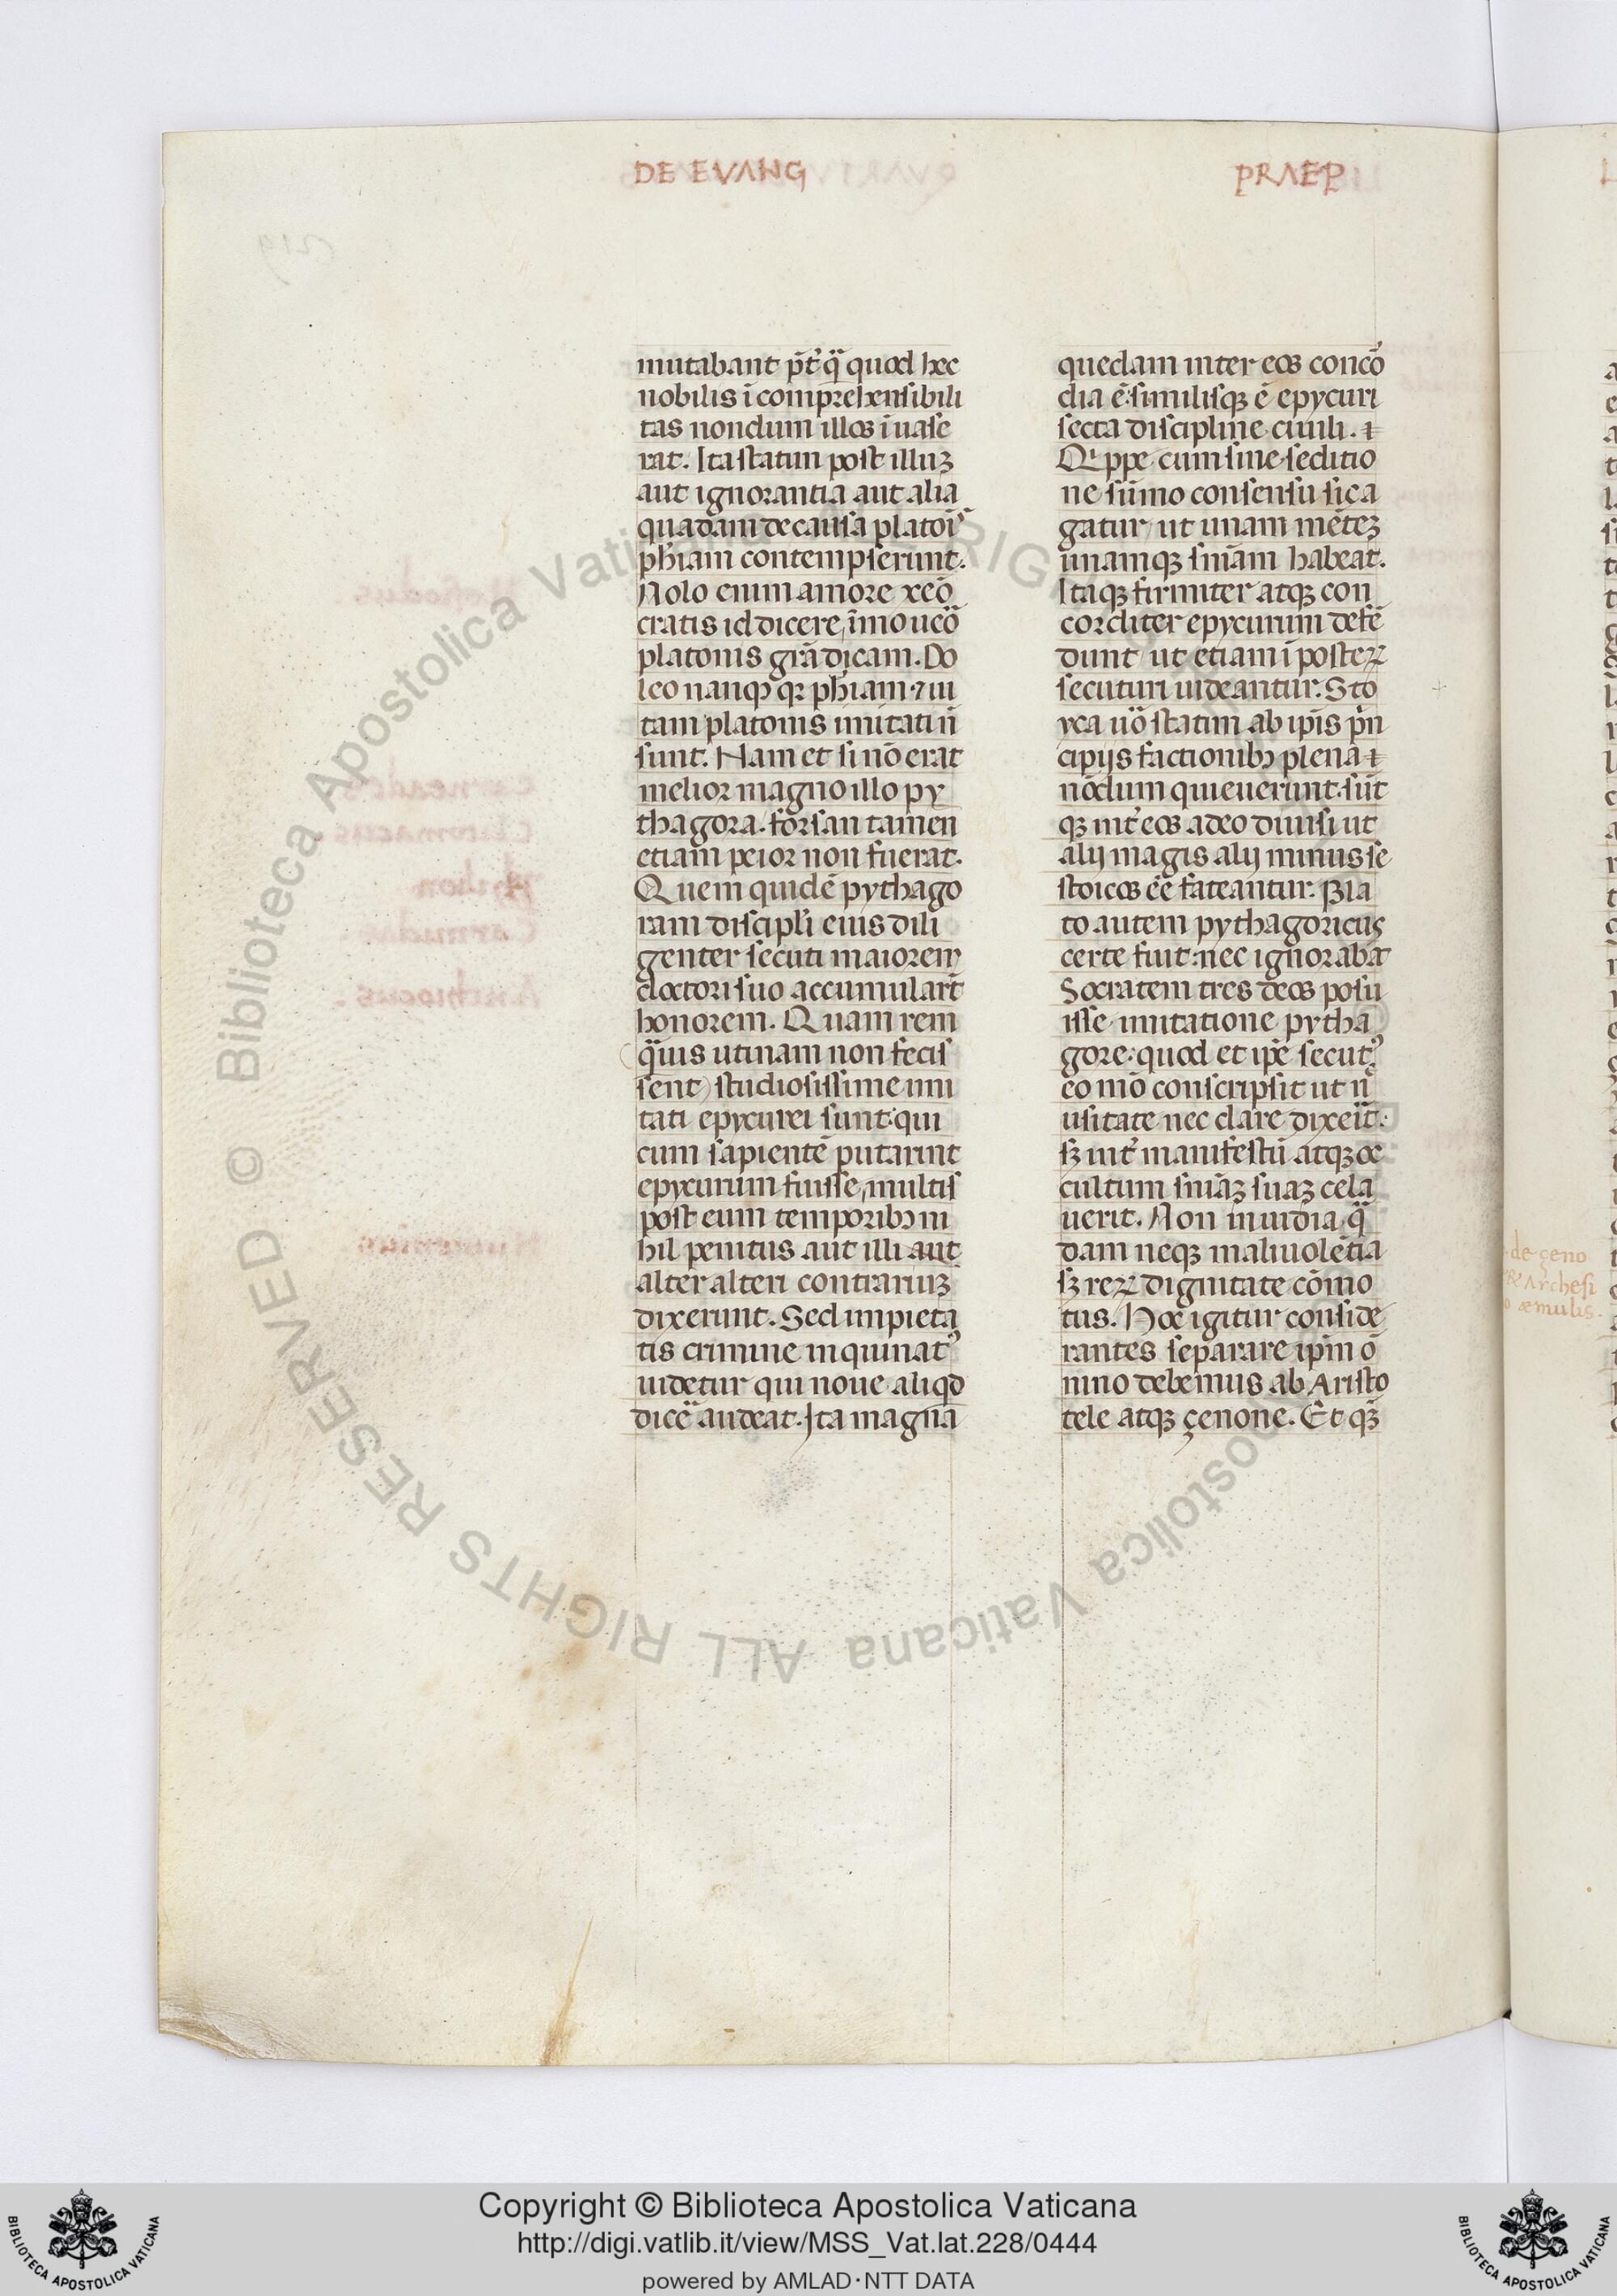 DE EVANG PRAEP
mutabant p̄t̓ q̈ quod hec
nobilis ī comprehensibili
tas nondum illos ī uase
rat. Ita statim post illuꝫ
aut ignorantia aut alia
quadam de causa platoīˢ
ph̄iam contempserunt.
Nolo enim amore xeō
cratis id dicere, īmo uēo
platonis grā dicam. Do
leo nanqꝫ qꝛ ph̄iam ⁊ ui
tam platonis imitati n̄
sunt. Nam et si nō erat
melior magno illo py
thagora. forsan tamen
etiam peior non fuerat.
Quem quidē pythago
ram discipl̄i eius dili
genter secuti maiorem
doctori suo accumular̄t
honorem. Quam rem
(q̈uis utinam non fecis
sent) studiosissime imi
tati epycurei sunt: qui
cum sapientē putarint
epycurum fuisse, multis
post eum temporibꝫ ni
hil penitus aut illi aut
alter alteri contrariuꝫ
dixerunt. Sed impieta
tis crimine inquinatꝰ
uidetur qui noue aliqd
dicē audeat. Ita magna
quedam inter eos concō
dia ē: similisqꝫ ē epycuri
secta discipline ciuili.
Qͥppe cum sine seditio
ne sūmo consensu sic a
gatur, ut unam mēteꝫ
unamqꝫ sn̄iam habeat.
Itaqꝫ firmiter atqꝫ con
corditer epycurum defē
dunt ut etiam ī posteꝝ
secuturi uideantur. Sto
yca uō statim ab ip̄is pͥn
cipijs factionibꝫ plena
nōdum quieuerunt. sūt
qꝫ int̓ eos adeo diuisi ut
alij magis alij minus se
stoicos ēē fateantur. Pla
to autem pythagoricus
certe fuit: nec ignorabāt
Socratem tres deos posu
isse imitatione pytha
gore: quod et ip̄e secutꝰ
eo mō conscripsit ut n̄
usitate nec clare dixeīt:
sꝫ int̓ manifestū atqꝫ oc
cultum sn̄iaꝫ suaꝫ cela
uerit. Non inuidia q̈
dam neqꝫ maliuolētia
sꝫ reꝝ dignitate cōmo
tus. Hoc igitur conside
rantes separare ip̄m ō
nino debemus ab Aristo
tele atqꝫ çenone. Et qꝫ̄
de çeno
Archesi
o æmulis.
Copyright © Biblioteca Apostolica Vaticana
http://digi.vatlib.it/view/MSS_Vat.lat.228/0444
powered by AMLAD · NTT DATA
BIBLIOTECA APOSTOLICA VATICANA
BIBLIOTECA APOSTOLICA VATICANA
© Biblioteca Apostolica Vaticana ALL RIGHTS RESERVED